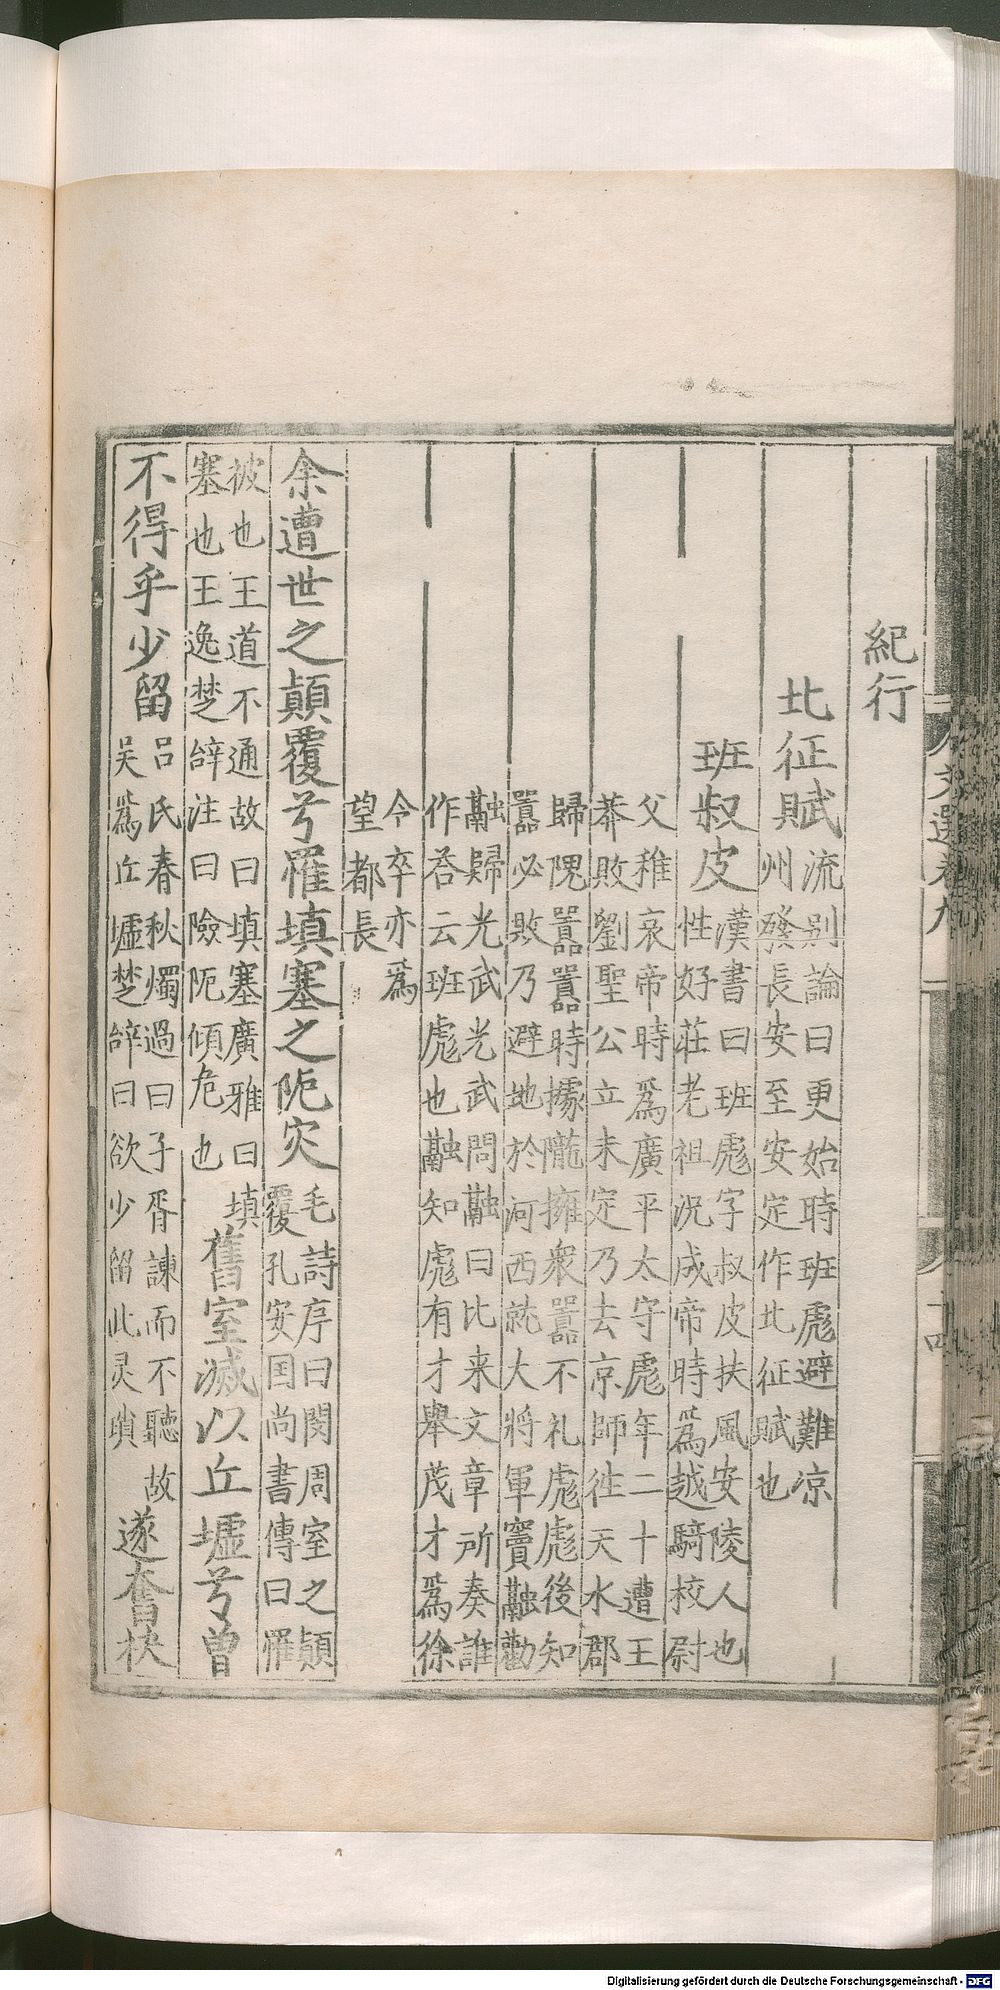 文選卷九
紀行
北征賦 流别論曰更始時班彪避難凉州發長安至安定作北征賦也
班叔皮 漢書曰班彪字叔皮扶風安陵人也性好莊老祖況成帝時爲越騎校尉
父稚哀帝時爲廣平太守彪年二十遭王莽敗劉聖公立未定乃去京師往天水郡
歸隗囂囂時據隴擁衆囂不礼彪彪後知囂必敗乃避地於河西就大將軍竇融勸
融歸光武光武問融曰比来文章所奏誰作荅云班彪也融知彪有才舉茂才爲徐
令卒亦爲望都長
余遭世之顛覆兮罹填塞之阨灾 毛詩序曰閔周室之顛覆孔安国尚書傳曰罹
披也王道不通故曰填塞廣雅曰填塞也王逸楚辝注曰險阨傾危也 舊室滅以丘墟兮曾
不得乎少留 吕氏春秋燭過曰子胥諫而不聽故吳爲丘墟楚辝曰欲少留此灵瑣 遂奮袂
Digitalisierung gefördert durch die Deutsche Forschungsgemeinschaft - DFG